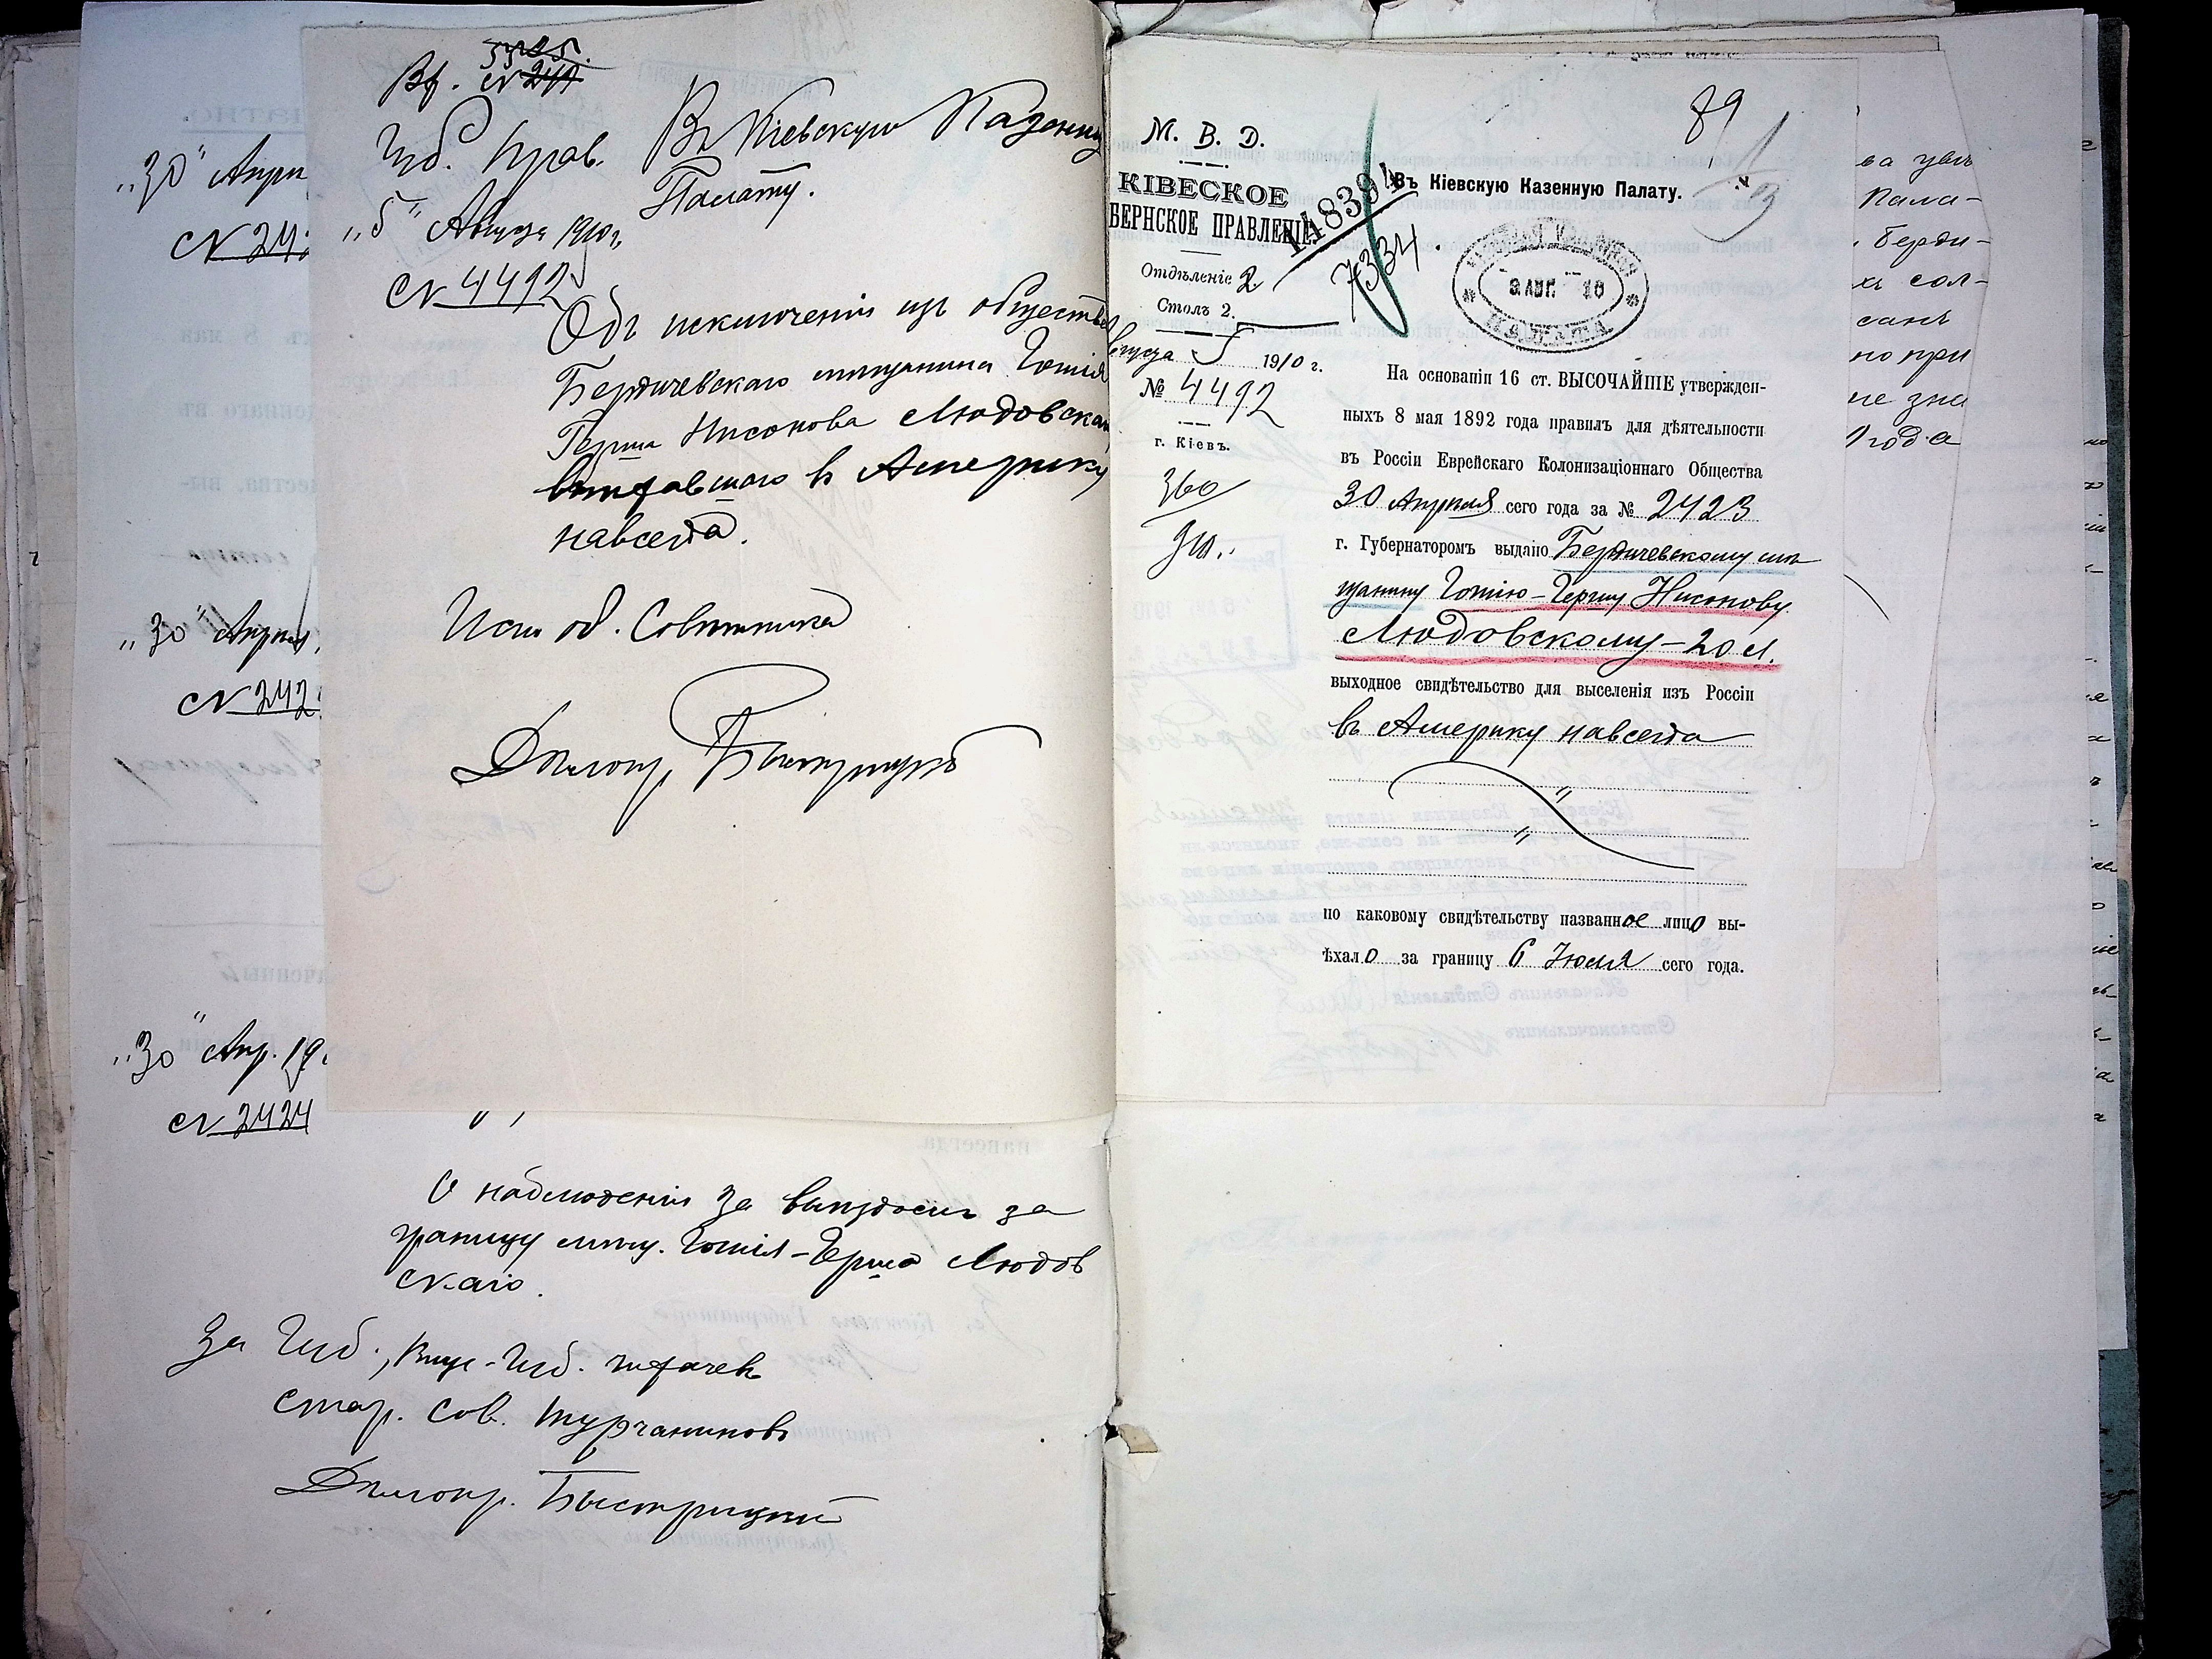 "30" Апрл
№ 242
"30" Апрля
№ 242
"30" Апр. 19
№ 2424
Вх. № 240
5325.
Губ. Прав.
"5" Августа 1910 г.
№ 4492
Въ Кіевскую Казенну
Палату.
Объ исключеніи изъ общества
Бердичевскаго мѣщанина Готліа
Герша Нисонова Людовска
выѣхавшаго въ Америку
навсегда.
Исп. об. Совѣтника
Дѣлопр. Быстрицкій
О наблюденіи за выѣздомъ за
границу мѣщ. Готліа-Герша Людов
скаго.
За Губ., Вице-Губ.
Стар. Сов. Турчаниновъ
Дѣлопр. Быстрицкій
М. В. Д.
КІВЕСКОЕ
БЕРНСКОЕ ПРАВЛЕНІЕ.
Отдѣленіе 2.
Столъ 2.
вгуста 5 1910 г.
№ 4492
г. Кіевъ.
360
148394
7334
89
1/3
Въ Кіевскую Казенную Палату.
9 АВГ 10
ПАЛАТА
На основаніи 16 ст. ВЫСОЧАЙШЕ утвержден-
ныхъ 8 мая 1892 года правилъ для дѣятельности
въ Россіи Еврейскаго Колонизаціоннаго Общества
30 Апрѣля сего года за № 2423
г. Губернаторомъ выдано Бердичевскому мѣ
щанину Готлію-Гершу Нисонову
Людовскому - 20 л.
выходное свидѣтельство для выселенія изъ Россіи
въ Америку навсегда
по каковому свидѣтельству названное лицо вы-
ѣхало за границу 6 Іюля сего года.
Пала-
Берди-
сол-
но при
не зна
года